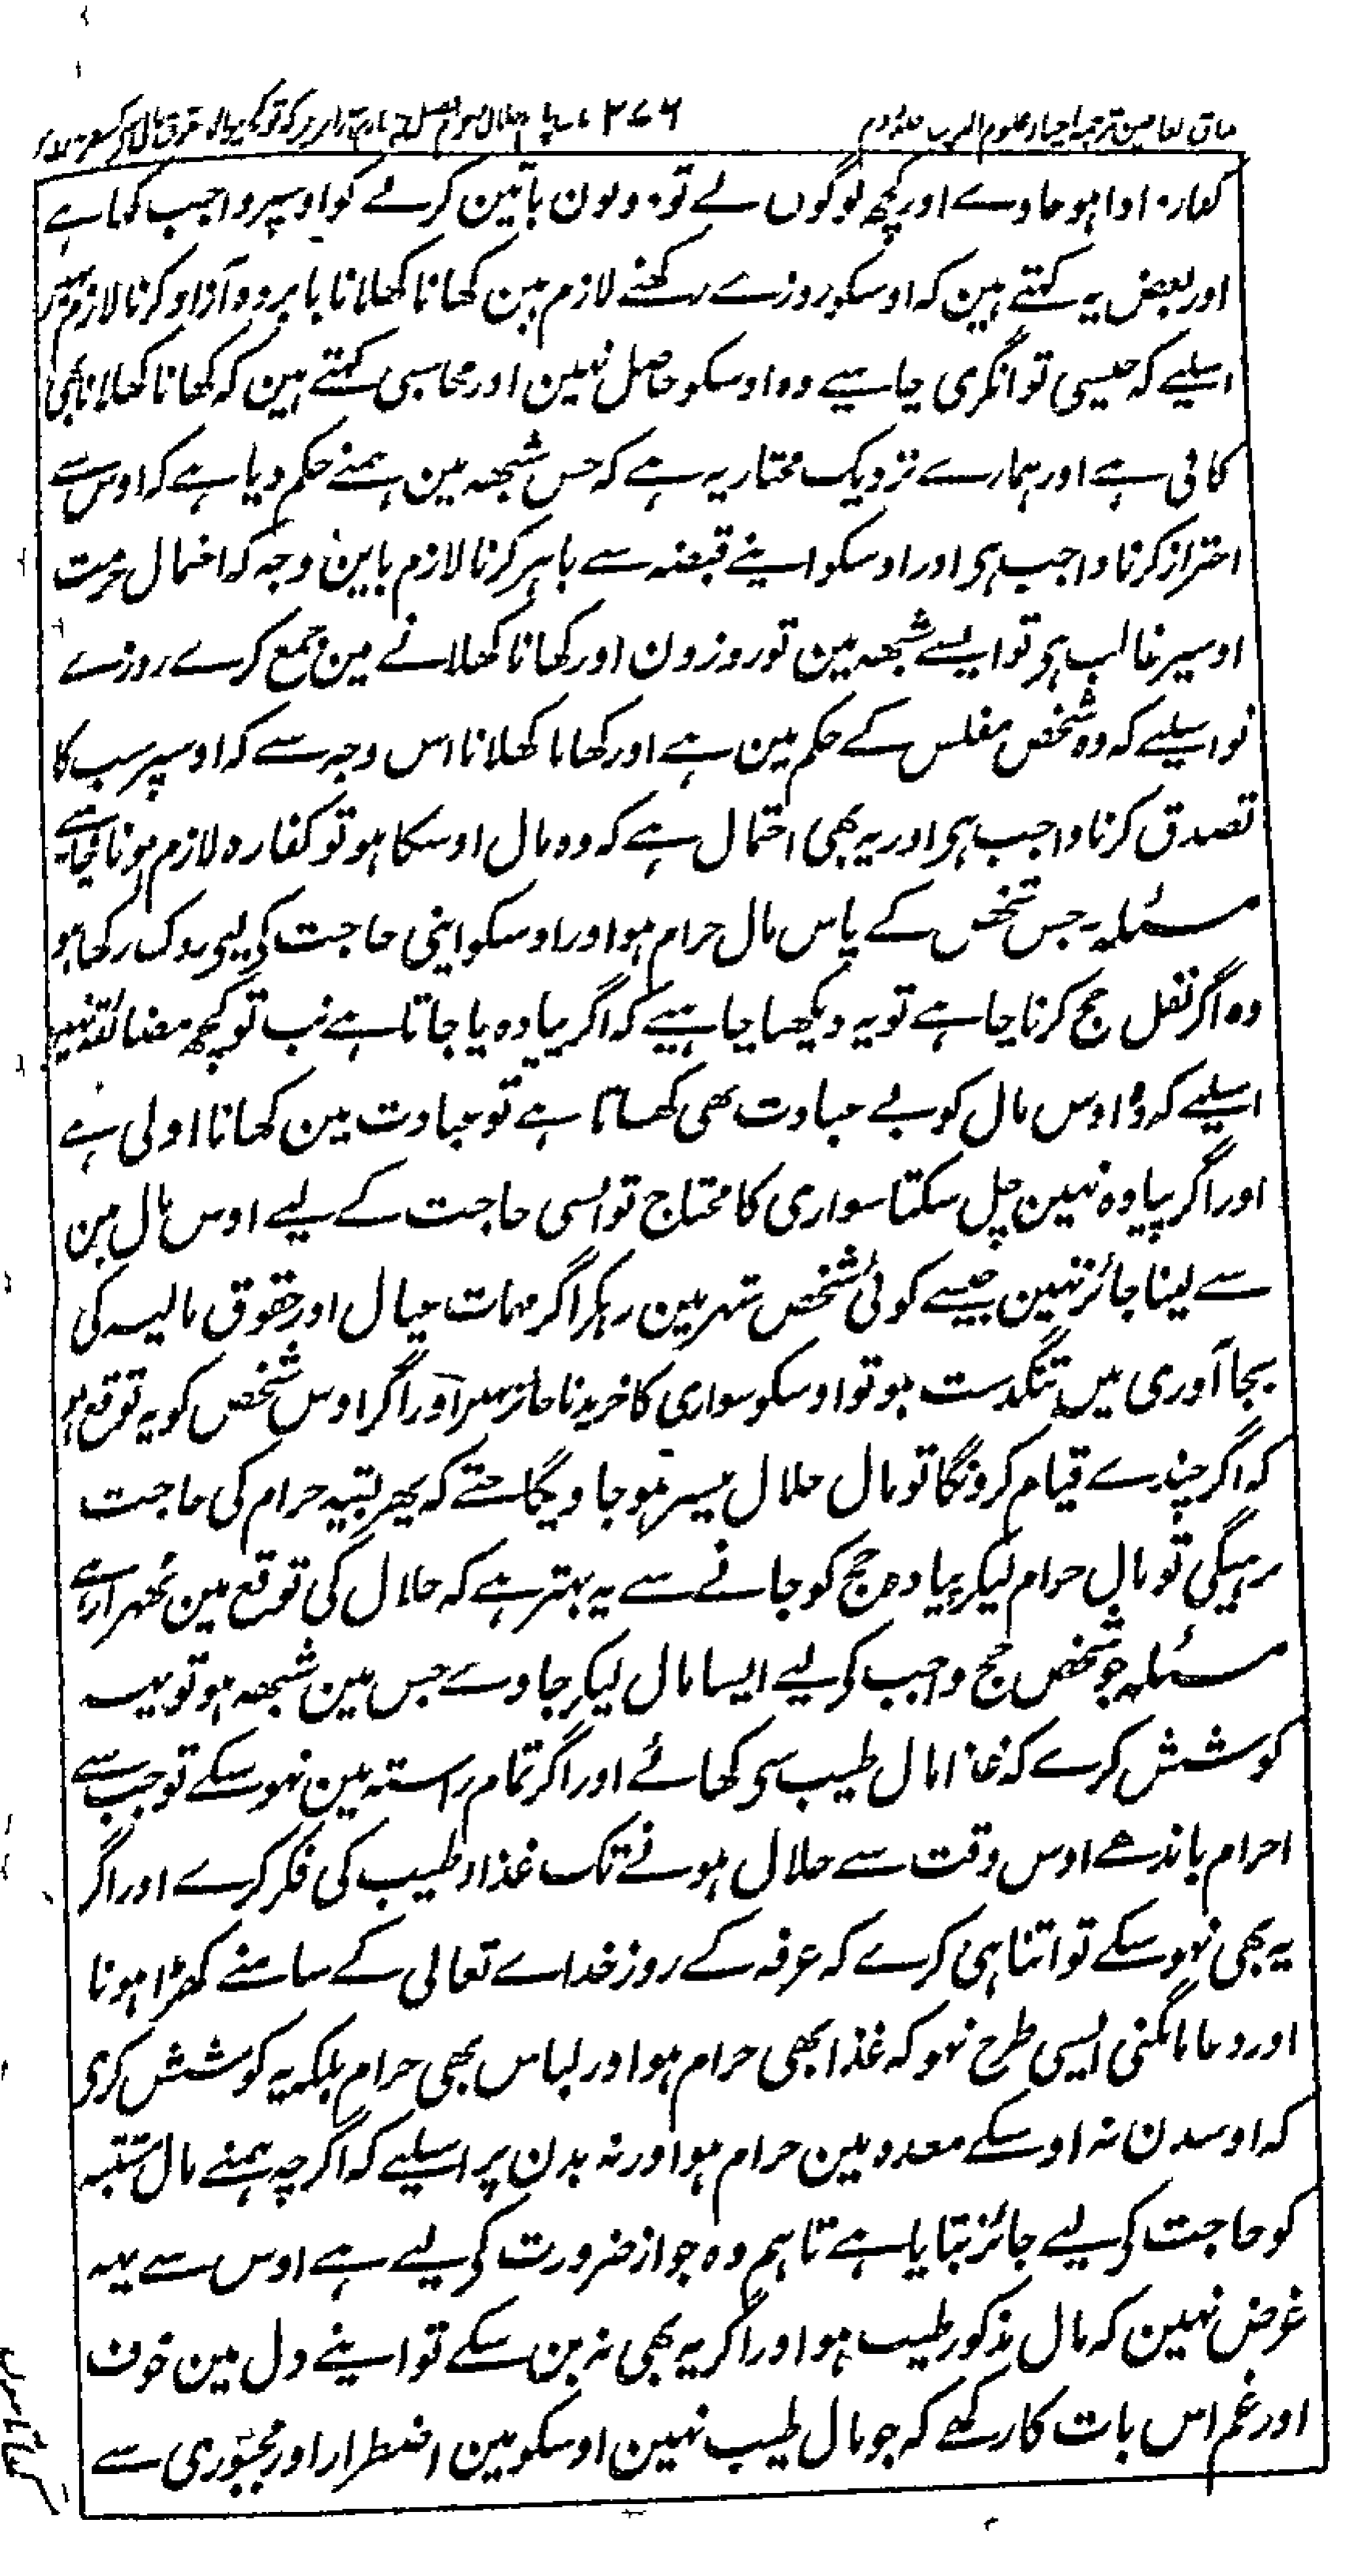 مذاق العارفین ترجمہ احیاء علوم الدین جلد دوم ۳۷۶
کفارہ ادا ہو جاوے اور کچھ لوگوں نے تو دونون باتین کرنے کو اوسپر واجب کہا ہے
اور بعض یہ کہتے ہین کہ اوسکو روزے رکھنے لازم ہین کھانا کھلانا یا بردہ آزاد کرنا لازم نہین
اسلیے کہ جیسی توانگری چاہیے وہ اوسکو حاصل نہین اور محاسبی کہتے ہین کہ کھانا کھلانا بھی
کافی ہے اور ہمارے نزدیک مختار یہ ہے کہ جس شبھہ مین ہمنے حکم دیا ہے کہ اوس سے
احتراز کرنا واجب ہی اور اوسکو اپنے قبضہ سے باہر کرنا لازم باین وجہ کہ احتمال حرمت
اوسپر غالب ہی تو ایسے شبھہ مین تو روزون اور کھانا کھلانے مین جمع کرے روزے
تو اسلیے کہ وہ شخص مفلس کے حکم مین ہے اور کھانا کھلانا اس وجہ سے کہ اوسپر سب کا
تصدق کرنا واجب ہی اور یہ بھی احتمال ہے کہ وہ مال اوسکا ہو تو کفارہ لازم ہونا چاہیے
مسئلہ جس شخص کے پاس مال حرام ہو اور اوسکو اپنی حاجت کے لیے روک رکھا ہو
وہ اگر نفل حج کرنا چاہے تو یہ دیکھنا چاہیے کہ اگر پیادہ پا جاتا ہے تب تو کچھ مضائقہ نہین
اسلیے کہ وہ اوس مال کو بے عبادت بھی کھاتا ہے تو عبادت مین کھانا اولی ہے
اور اگر پیادہ نہین چل سکتا سواری کا محتاج تو ایسی حاجت کے لیے اوس مال مین
سے لینا جائز نہین جیسے کوئی شخص شہر مین رہکر اگر مہمات عیال اور حقوق مالیہ کی
بجا آوری میں تنگدست ہو تو اوسکو سواری کا خریدنا جائز نہین اور اگر اوس شخص کو یہ توقع ہو
کہ اگر چندے قیام کرونگا تو مال حلال میسر ہو جاویگا حتے کہ پھر بقیہ حرام کی حاجت
نرہیگی تو مال حرام لیکر پیادہ حج کو جانے سے یہ بہتر ہے کہ حلال کی توقع مین ٹھہرا رہے
مسئلہ جو شخص حج واجب کے لیے ایسا مال لیکر جاوے جس مین شبھہ ہو تو یہہ
کوشش کرے کہ غذا مال طیب سی کھائے اور اگر تمام راستہ مین نہو سکے تو جب سے
احرام باندھے اوس وقت سے حلال ہونے تک غذاء طیب کی فکر کرے اور اگر
یہ بھی نہو سکے تو اتنا ہی کرے کہ عرفہ کے روز خداے تعالی کے سامنے کھڑا ہونا
اور دعا مانگنی ایسی طرح نہو کہ غذا بھی حرام ہو اور لباس بھی حرام بلکہ یہ کوشش کری
کہ اوسدن نہ اوسکے معدہ مین حرام ہو اور نہ بدن پر اسلیے کہ اگرچہ ہمنے مال مشتبہ
کو حاجت کے لیے جائز بتایا ہے تاہم وہ جواز ضرورت کے لیے ہے اوس سے یہہ
غرض نہین کہ مال مذکور طیب ہو اور اگر یہ بھی نہ بن سکے تو اپنے دل مین خوف
اور غم اس بات کا رکھے کہ جو مال طیب نہین اوسکو مین اضطرار اور مجبوری سے